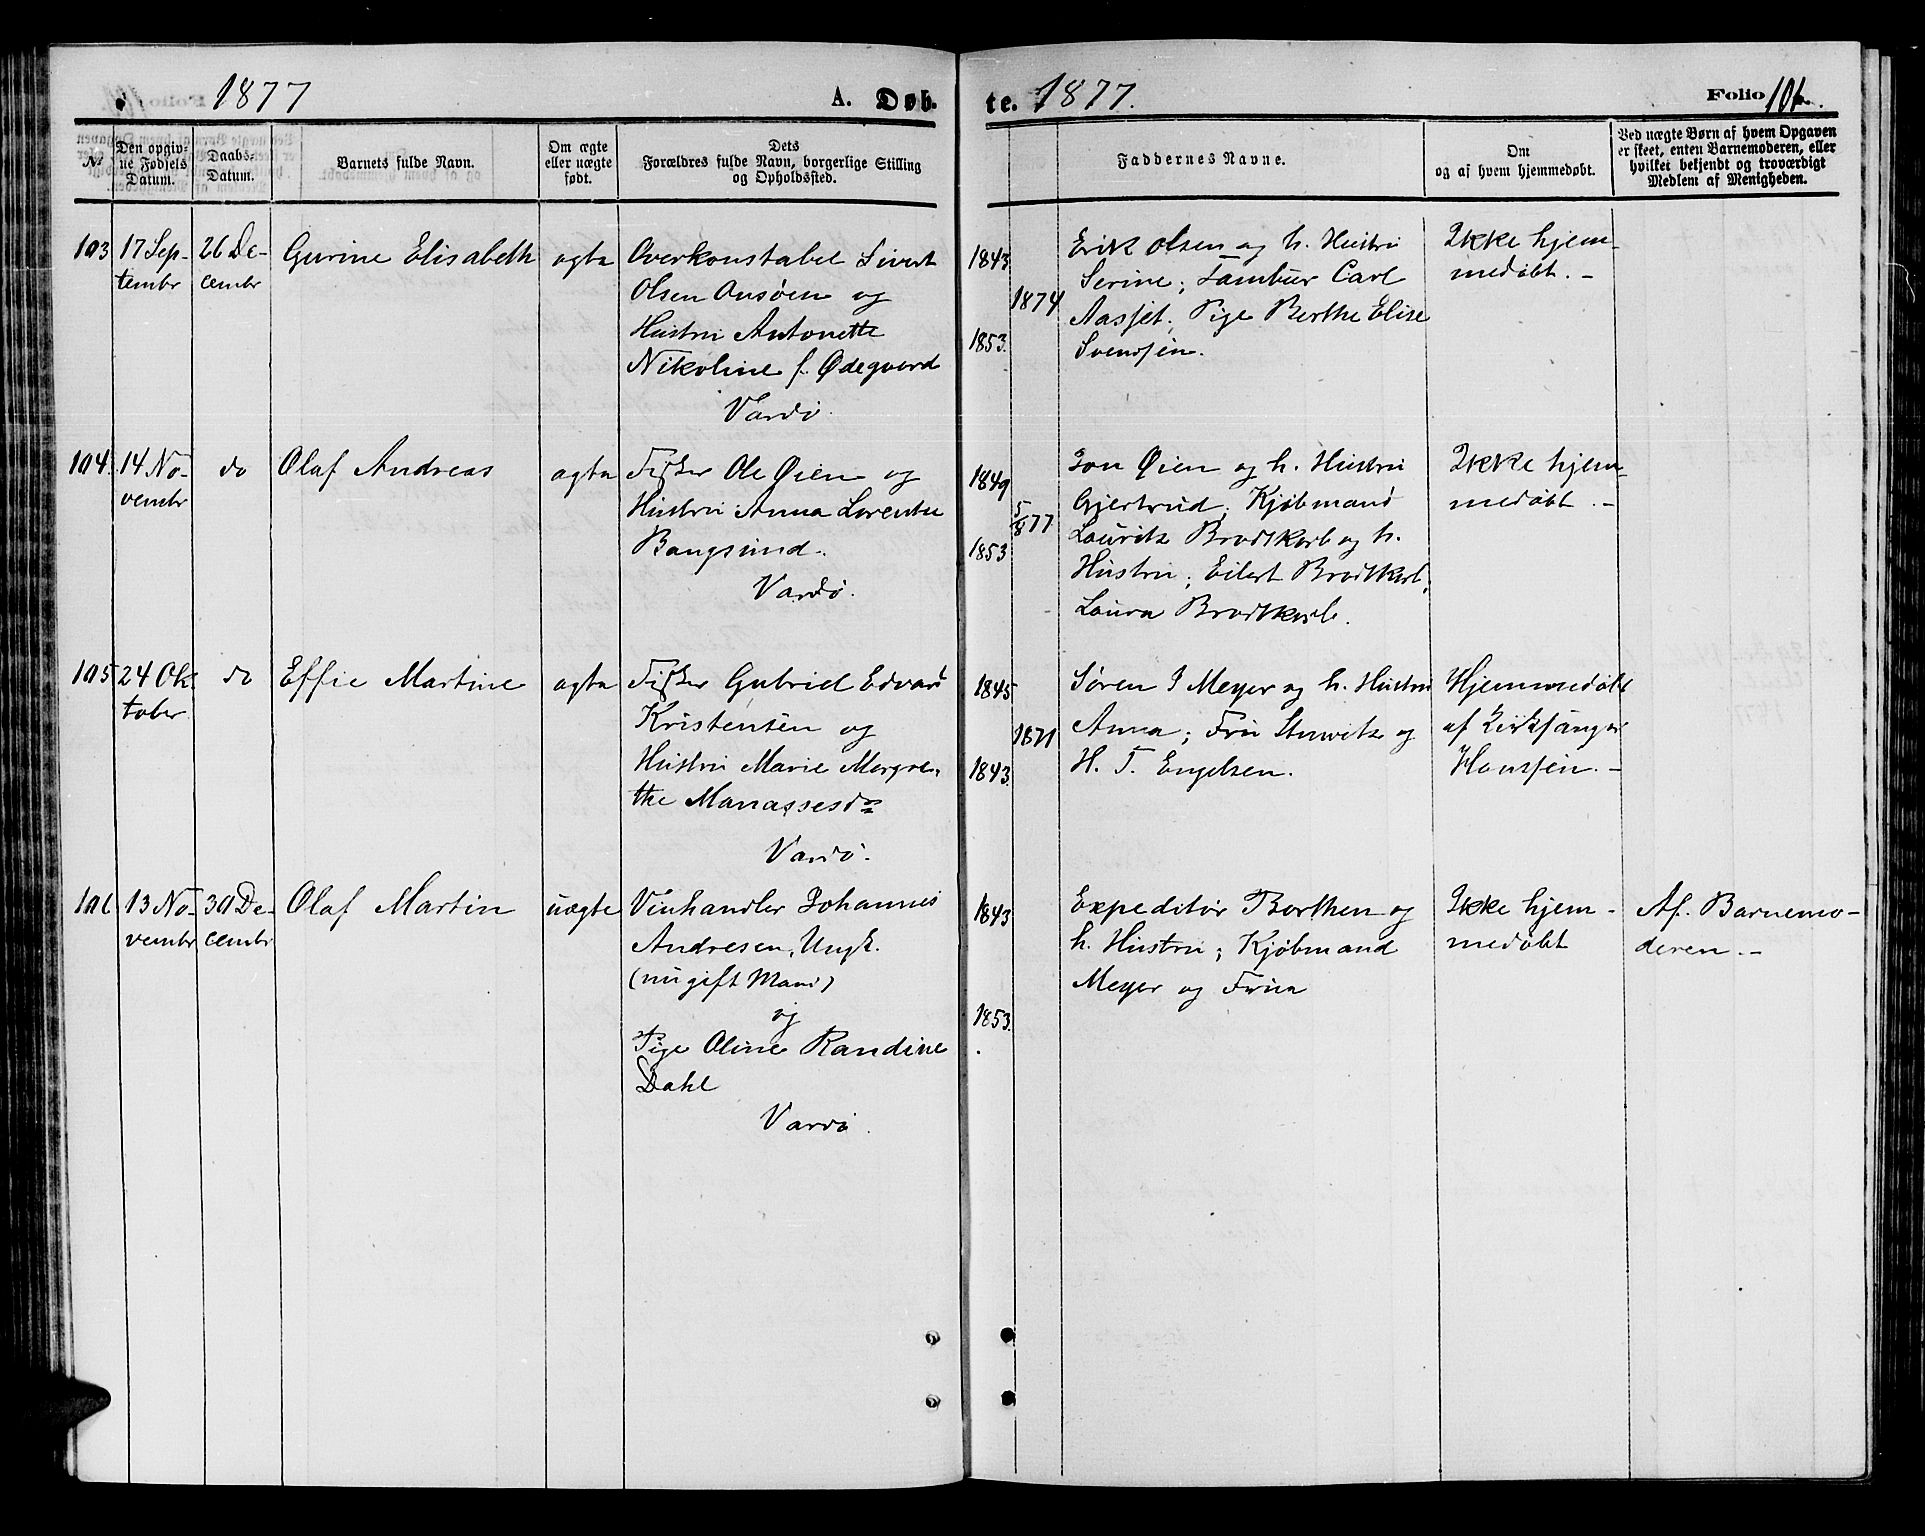 1877 A. Døb-
te. 1877. Folio 106.
№
Den opgiv-
ne Fødsels
Datum.
Daabs-
Datum.
Barnets fulde Navn.
Om ægte
eller uægte
født.
Dets
Forældres fulde Navn, borgerlige Stilling
og Opholdssted.
Faddernes Navne.
Om
og af hvem hjemmedøbt.
Ved uægte Børn af hvem Opgaven
er skeet, enten Barnemoderen, eller
hvilket bekjendt og troværdigt
Medlem af Menigheden.
103
17 Sep-
tembr
26 De-
cembr
Gurine Elisabeth
ægte
Overkonstabel Sivert
Olsen Onsøen og
Hustru Antonette
Nikoline f. Ødegaard
Vardø.
1843
1874
1853.
Erik Olsen og h. Hustru
Serine; Tambur Carl
Aasjet; Pige Berthe Elise
Svendsen.
Ikke hjem-
medøbt. -
104
14 No-
vembr
do
Olaf Andreas
ægte
Fisker Ole Øien og
Hustru Anna Lorentse
Bangsund.
Vardø.
1849
5/8 77
1853
Jon Øien og h. Hustru
Gjertrud; Kjøbmand
Lauritz Brodtkorb og h.
Hustru; Eilert Brodtkorb;
Laura Brodtkorb.
Ikke hjem-
medøbt. -
105
24 Ok-
tober
do
Effie Martine
ægte
Fisker Gabriel Edvard
Kristensen og
Hustru Marie Margre-
the Manassesdr
Vardø.
1845
1871
1843.
Søren J Meyer og h. Hustru
Anna; Fru Stuwitz og
H. T. Engelsen.
Hjemmedøbt
af Kirksanger
Hanssen. -
106
13 No-
vembr
30 De-
cembr
Olaf Martin
uægte
Vinhandler Johannes
Andresen, Ungk.
(nu gift Mand)
og
Pige Oline Randine
Dahl
Vardø.
1843
1853.
Expeditør Borthen og
h. Hustru; Kjøbmand
Meyer og Frue
Ikke hjem-
medøbt
Af Barnemo-
deren. -